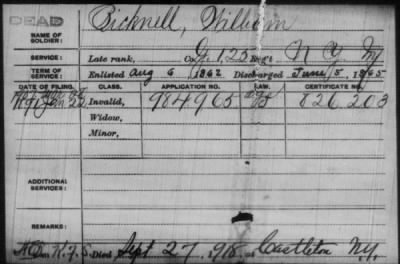 DEAD
NAME OF SOLDIER: Bicknell, William
SERVICE: Late rank, Co. G, 125 Reg't N.Y. Inf
TERM OF SERVICE: Enlisted Aug 6, 1862 Discharged June 5, 1865
DATE OF FILING. CLASS. APPLICATION NO. LAW. CERTIFICATE NO.
Invalid, 984965 826,203
Widow,
Minor,
ADDITIONAL SERVICES:
REMARKS:
Died Sept 27, 918, at Castleton N.Y.